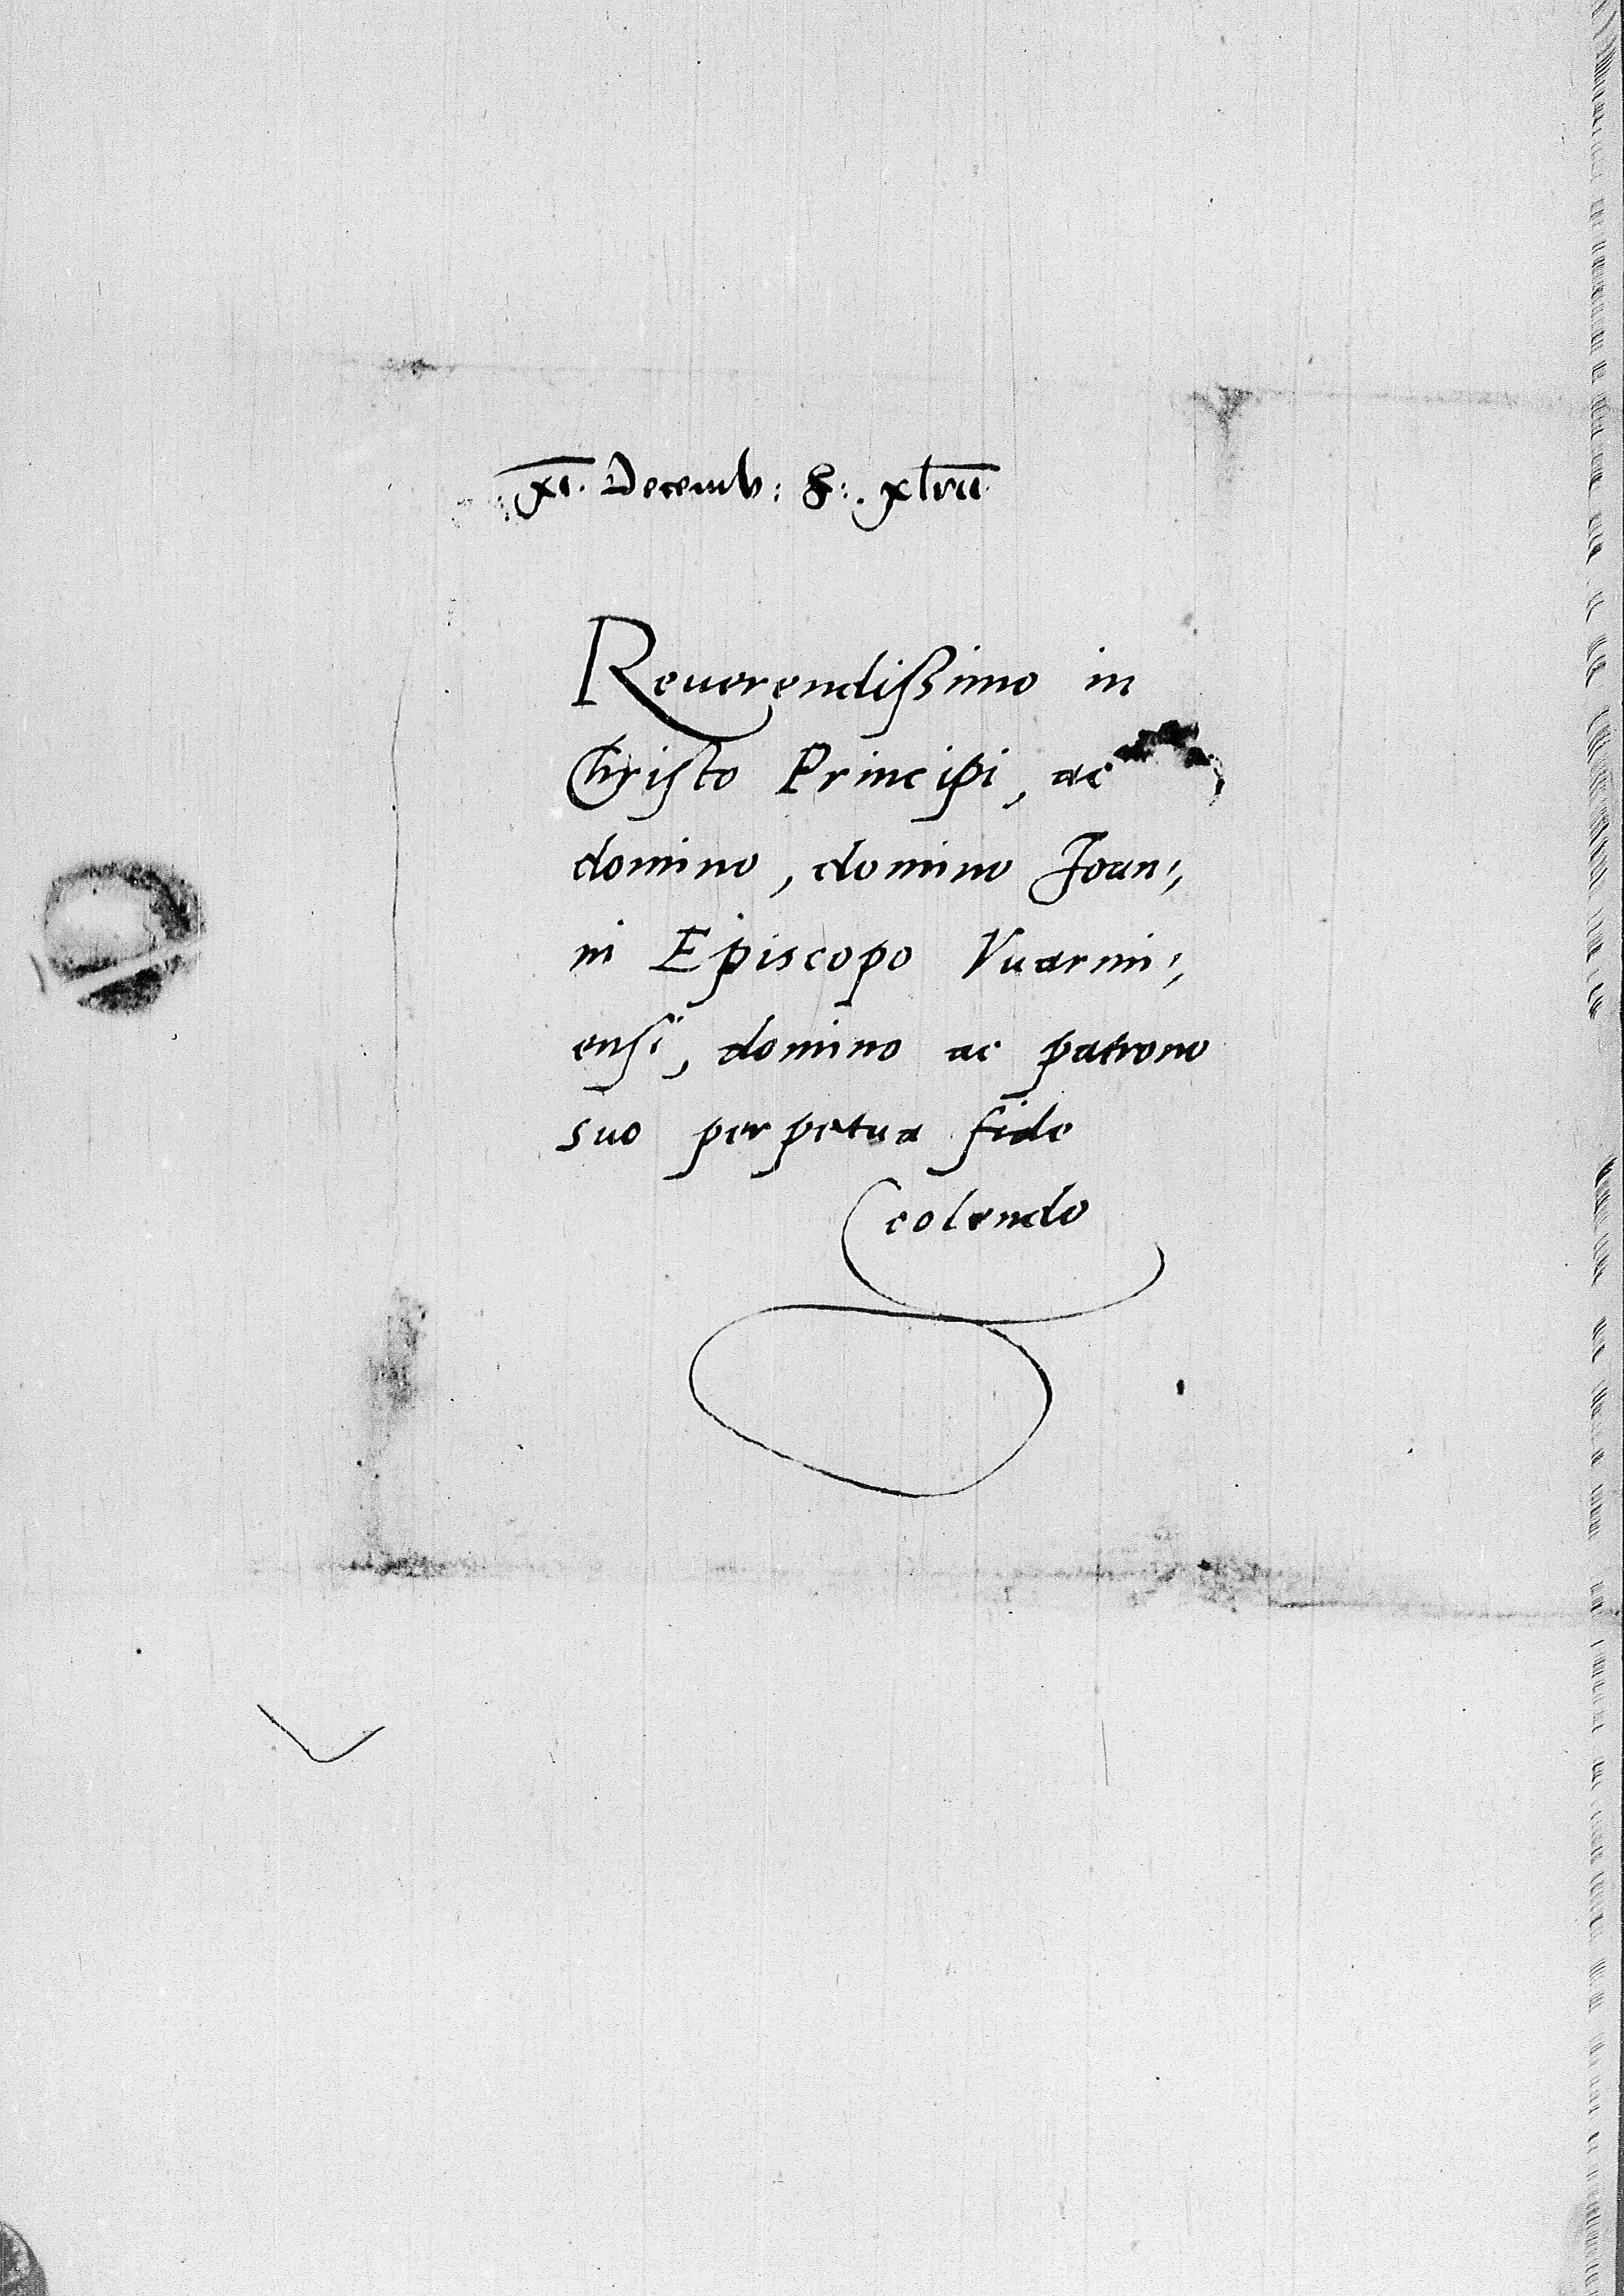 XI. Decemb: &: xlvii
Reuerendißimo in
Christo Principi, ac
domino, domino Ioan¦,
ni Episcopo Vuarmi¦,
ensi, domino ac patrono
suo perpetua fide
colendo